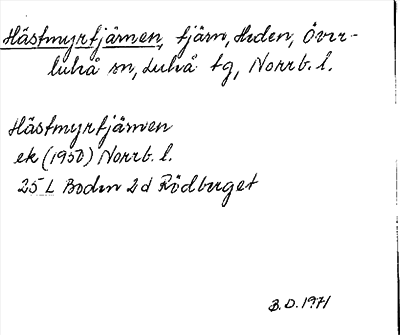 Hästmyrtjärnen, tjärn, Heden, Över-
luleå sn, Luleå tg, Norrb. l.
Hästmyrtjärnen
ek (1950) Norrb. l.
25 L Boden 2d Rödberget
B.D. 1971